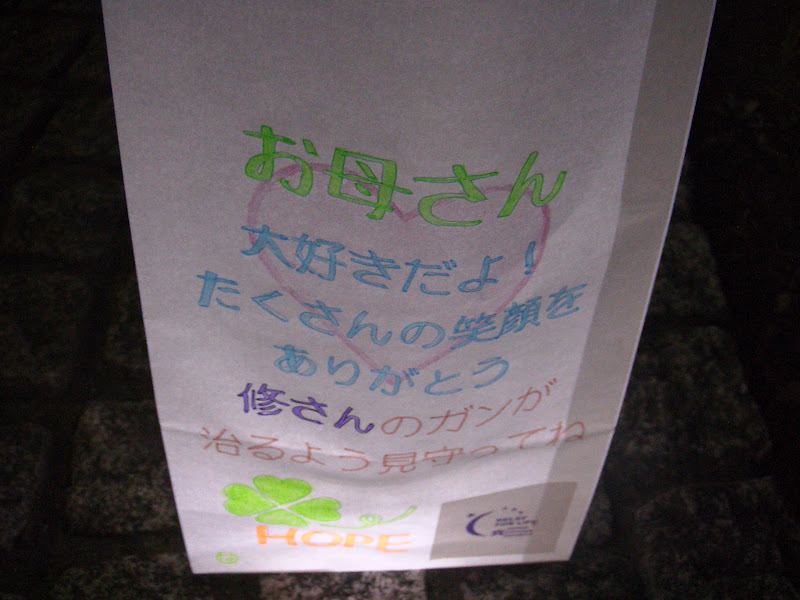 お母さん
大好きだよ!
たくさんの笑顔を
ありがとう
修さんのガンが
治るよう見守ってね
HOPE
RELAY
FOR LIFE